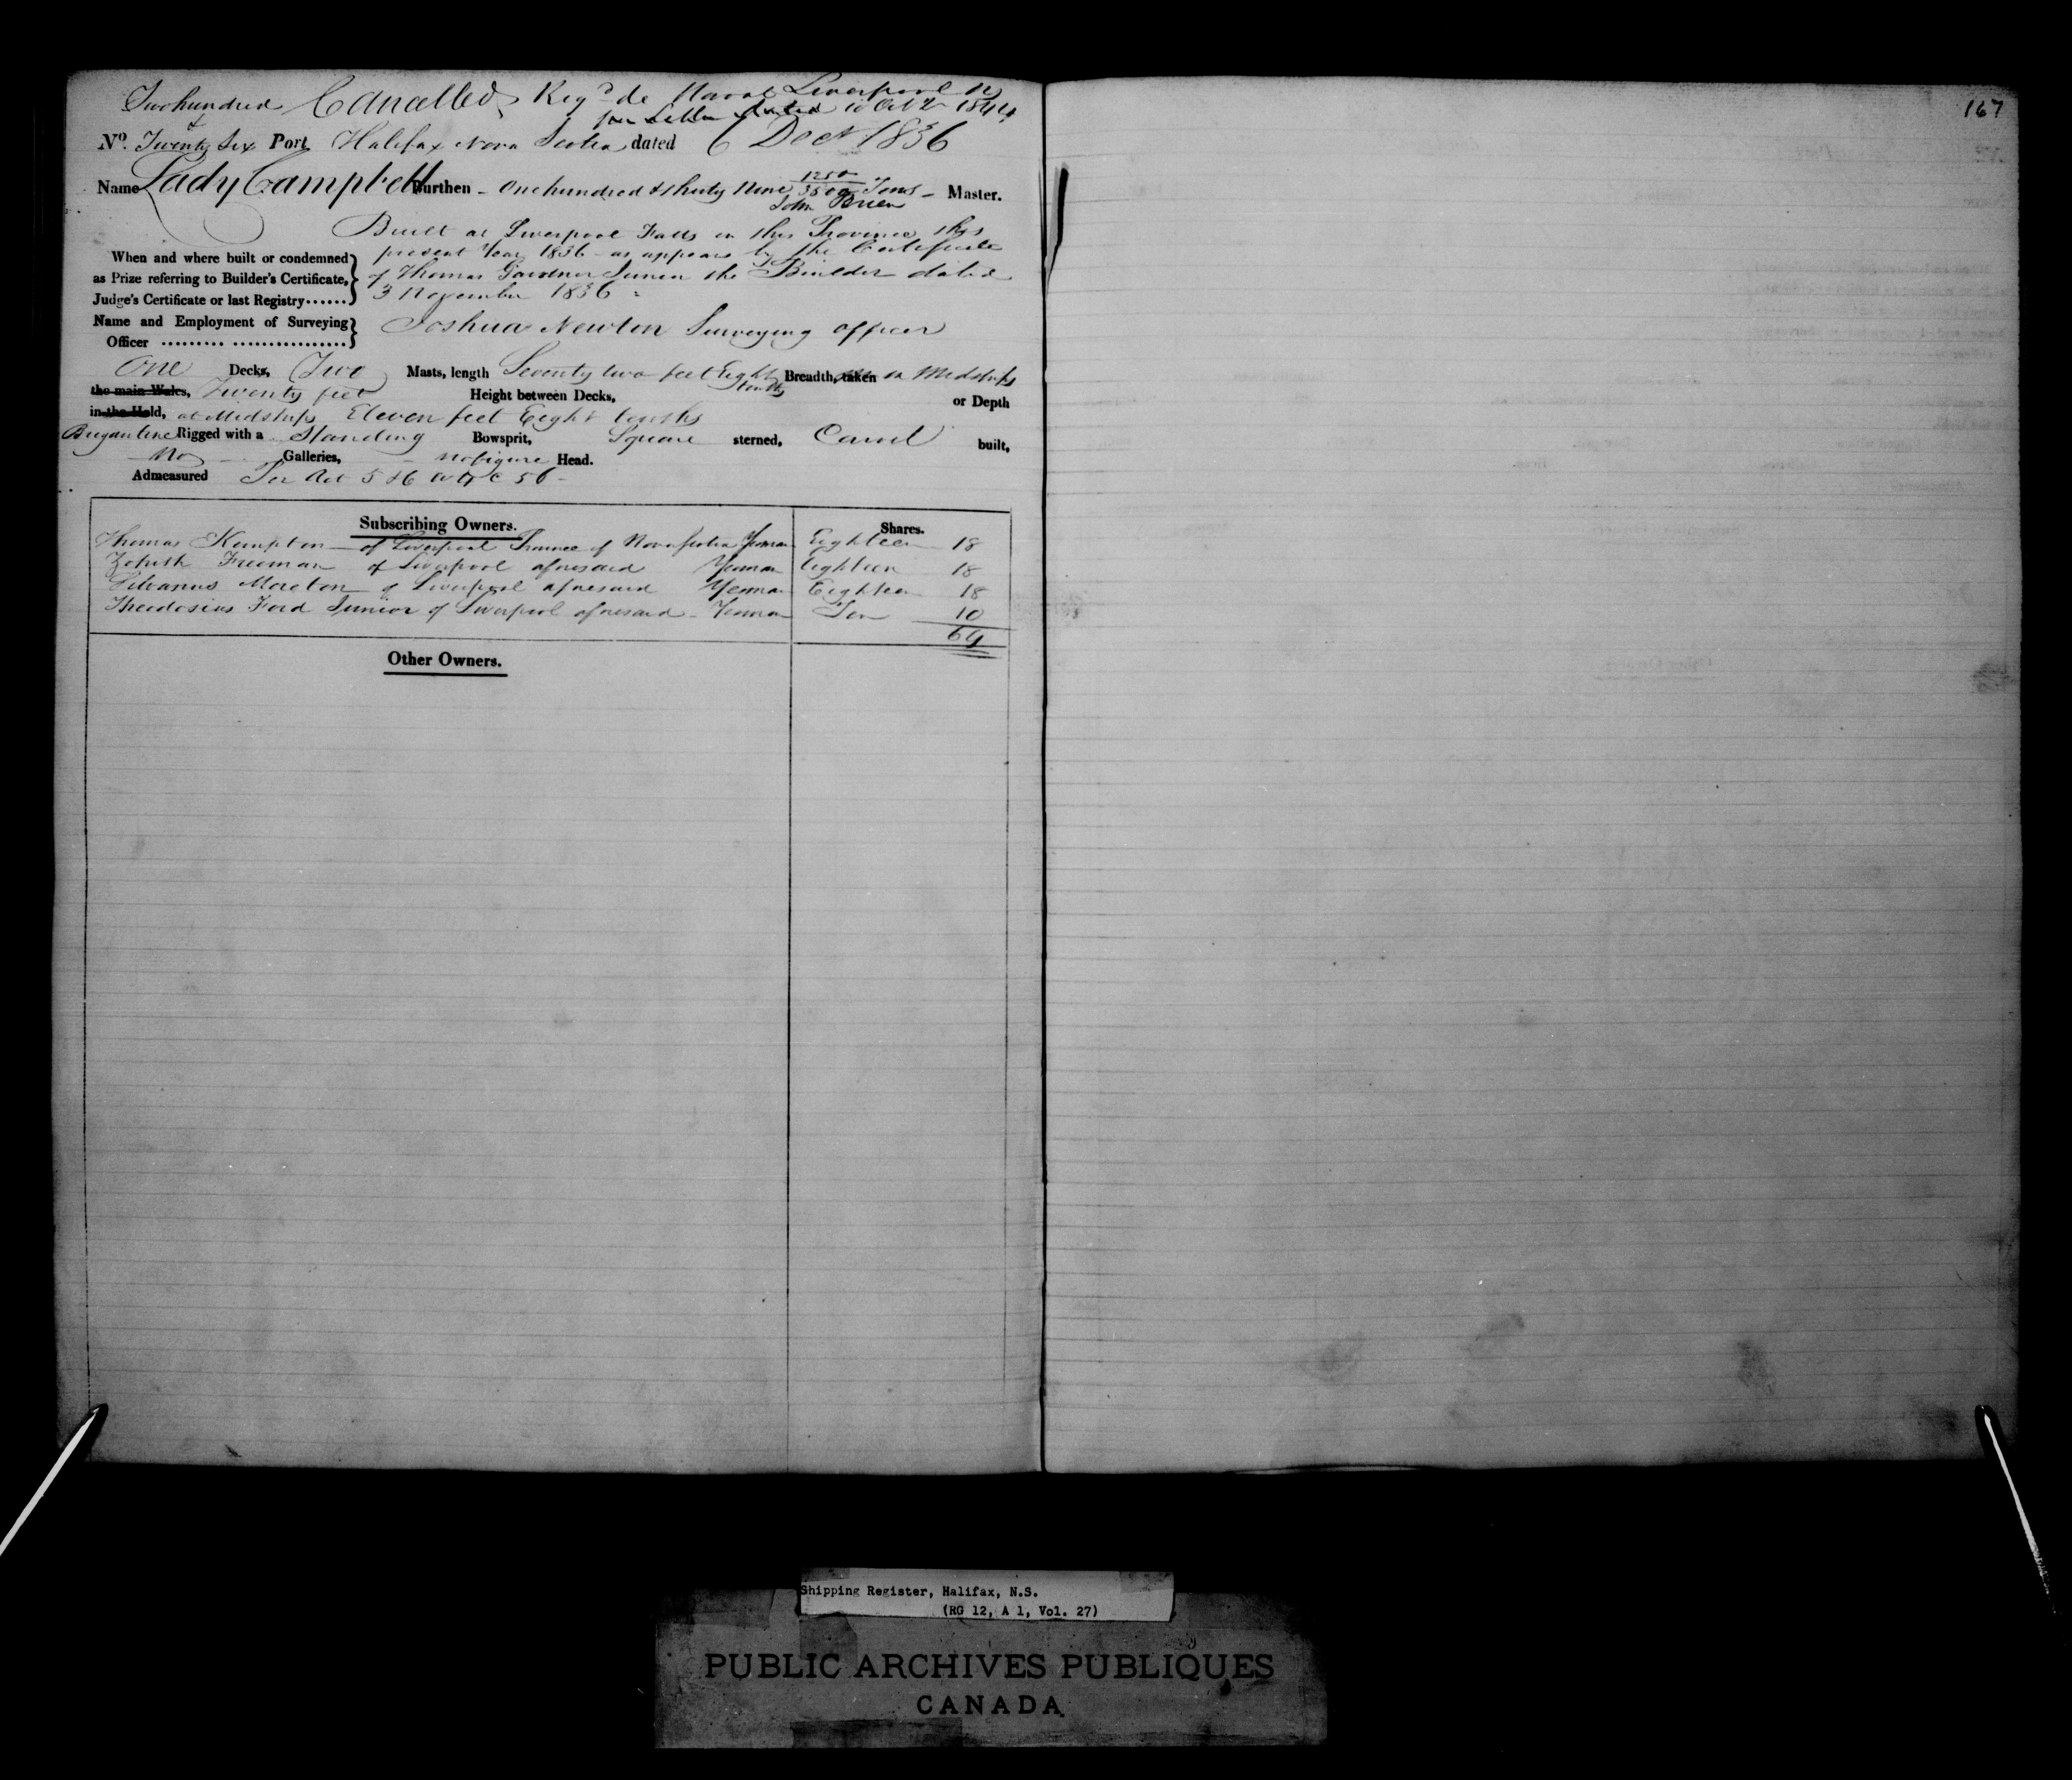 Two hundred Cancelled Regd de Novo Liverpool N
& per Letter dated 10 Oct 1844
No. Twenty Six Port Halifax Nova Scotia dated 6 Decr 1836
Name Lady Campbell Burthen - One hundred & thirty Nine 1250/3500 Tons - Master.
John Brien
Built at Liverpool Falls in this Province this
When and where built or condemned present Year 1836 - as appears by the Certificate
as Prize referring to Builder's Certificate, of Thomas Gardner Junior the Builder dated
Judge's Certificate or last Registry...... 3 November 1836
Name and Employment of Surveying Joshua Newton Surveying officer
Officer ......... ................
One Decks, Two Masts, length Seventy two feet Eight tenths Breadth, taken in Midships
the main Wales, Twenty feet Height between Decks, or Depth
in the Hold, at Midships Eleven feet Eight tenths
Brigantine Rigged with a Standing Bowsprit, Square sterned, Carvel built,
No Galleries, no figure Head.
Admeasured Per Act 5 & 6 W 4 C 56 -
Subscribing Owners. Shares.
Thomas Kempton of Liverpool Province of Nova Scotia Yeoman Eighteen 18
Freeman of Liverpool aforesaid Yeoman Eighteen 18
Silvanus Moreton of Liverpool aforesaid Yeoman Eighteen 18
Theodosius Ford Junior of Liverpool aforesaid - Yeoman Ten 10
64
Other Owners.
167
Shipping Register, Halifax, N.S.
(RG 12, A 1, Vol. 27)
PUBLIC ARCHIVES PUBLIQUES
CANADA